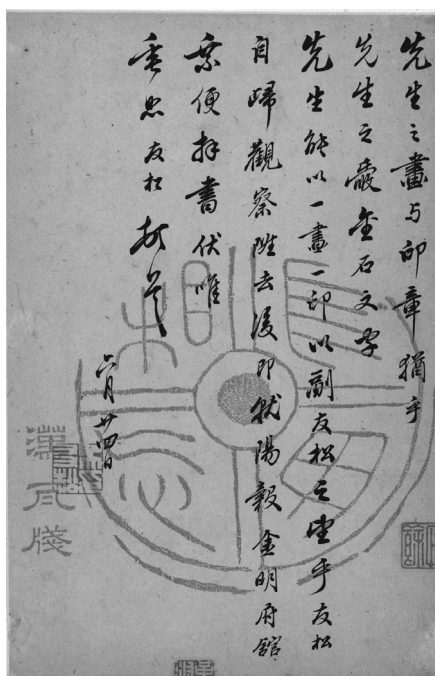 先生之畫与印章猶乎
先生之金石文字
先生能以一畫一印以副友松之望乎友松
自歸觀察陞去後即就陽穀金明府館
乘便拜書伏唯
垂友松
六月廿四日
漢瓦牋